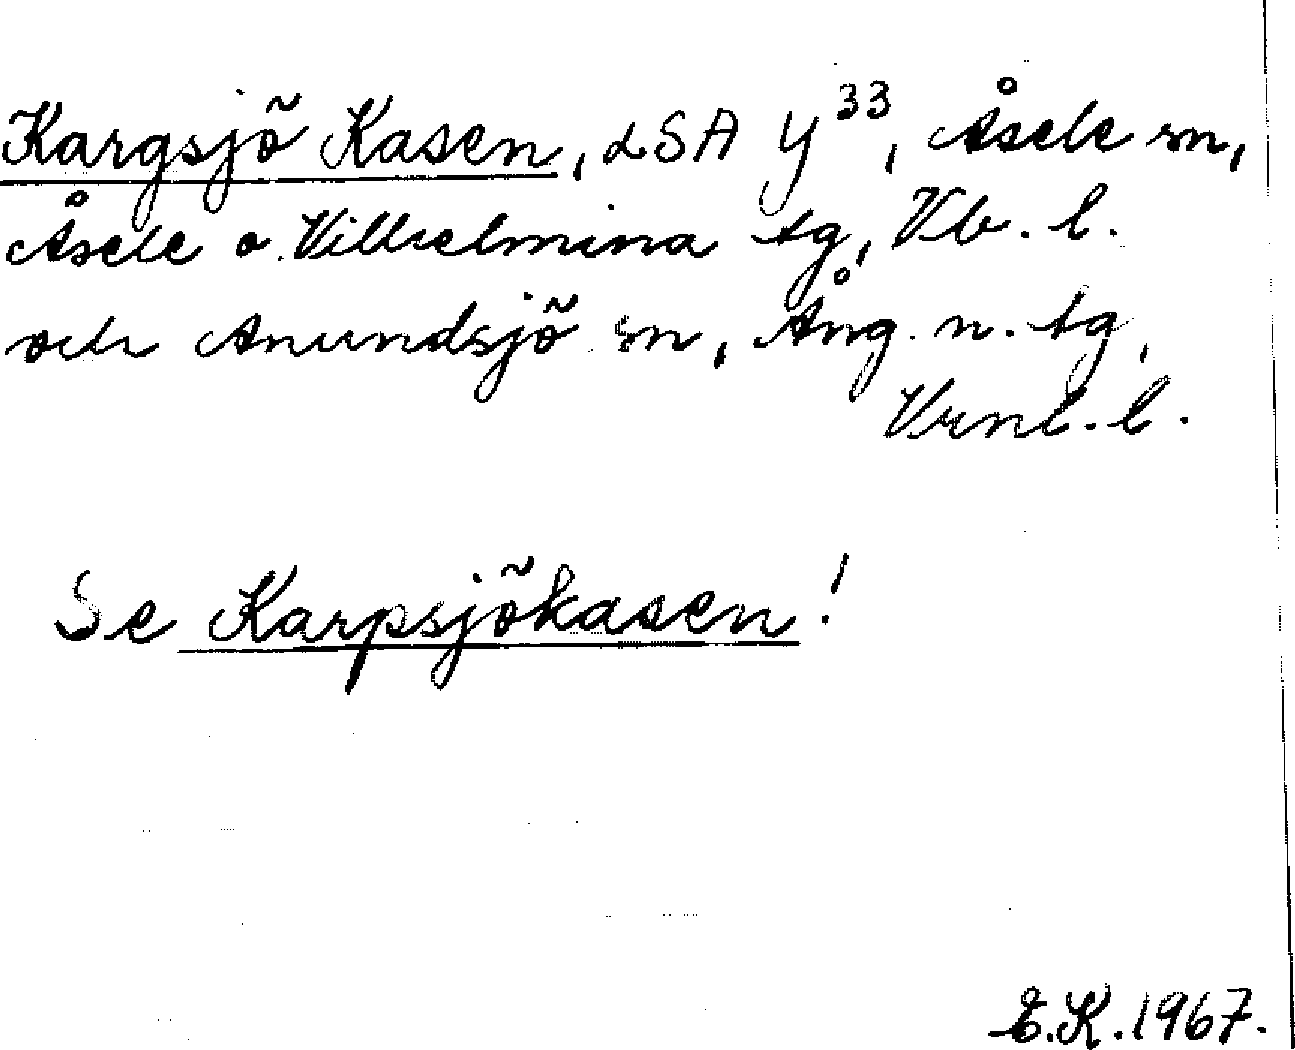 Kargsjö Kasen, LSA Y³³, Åsele sn,
Åsele o. Vilhelmina tg, Vb. l.
och Anundsjö sn, Ång. n. tg,
Vrnl. l.
Se Karpsjökasen!
E.K. 1967.